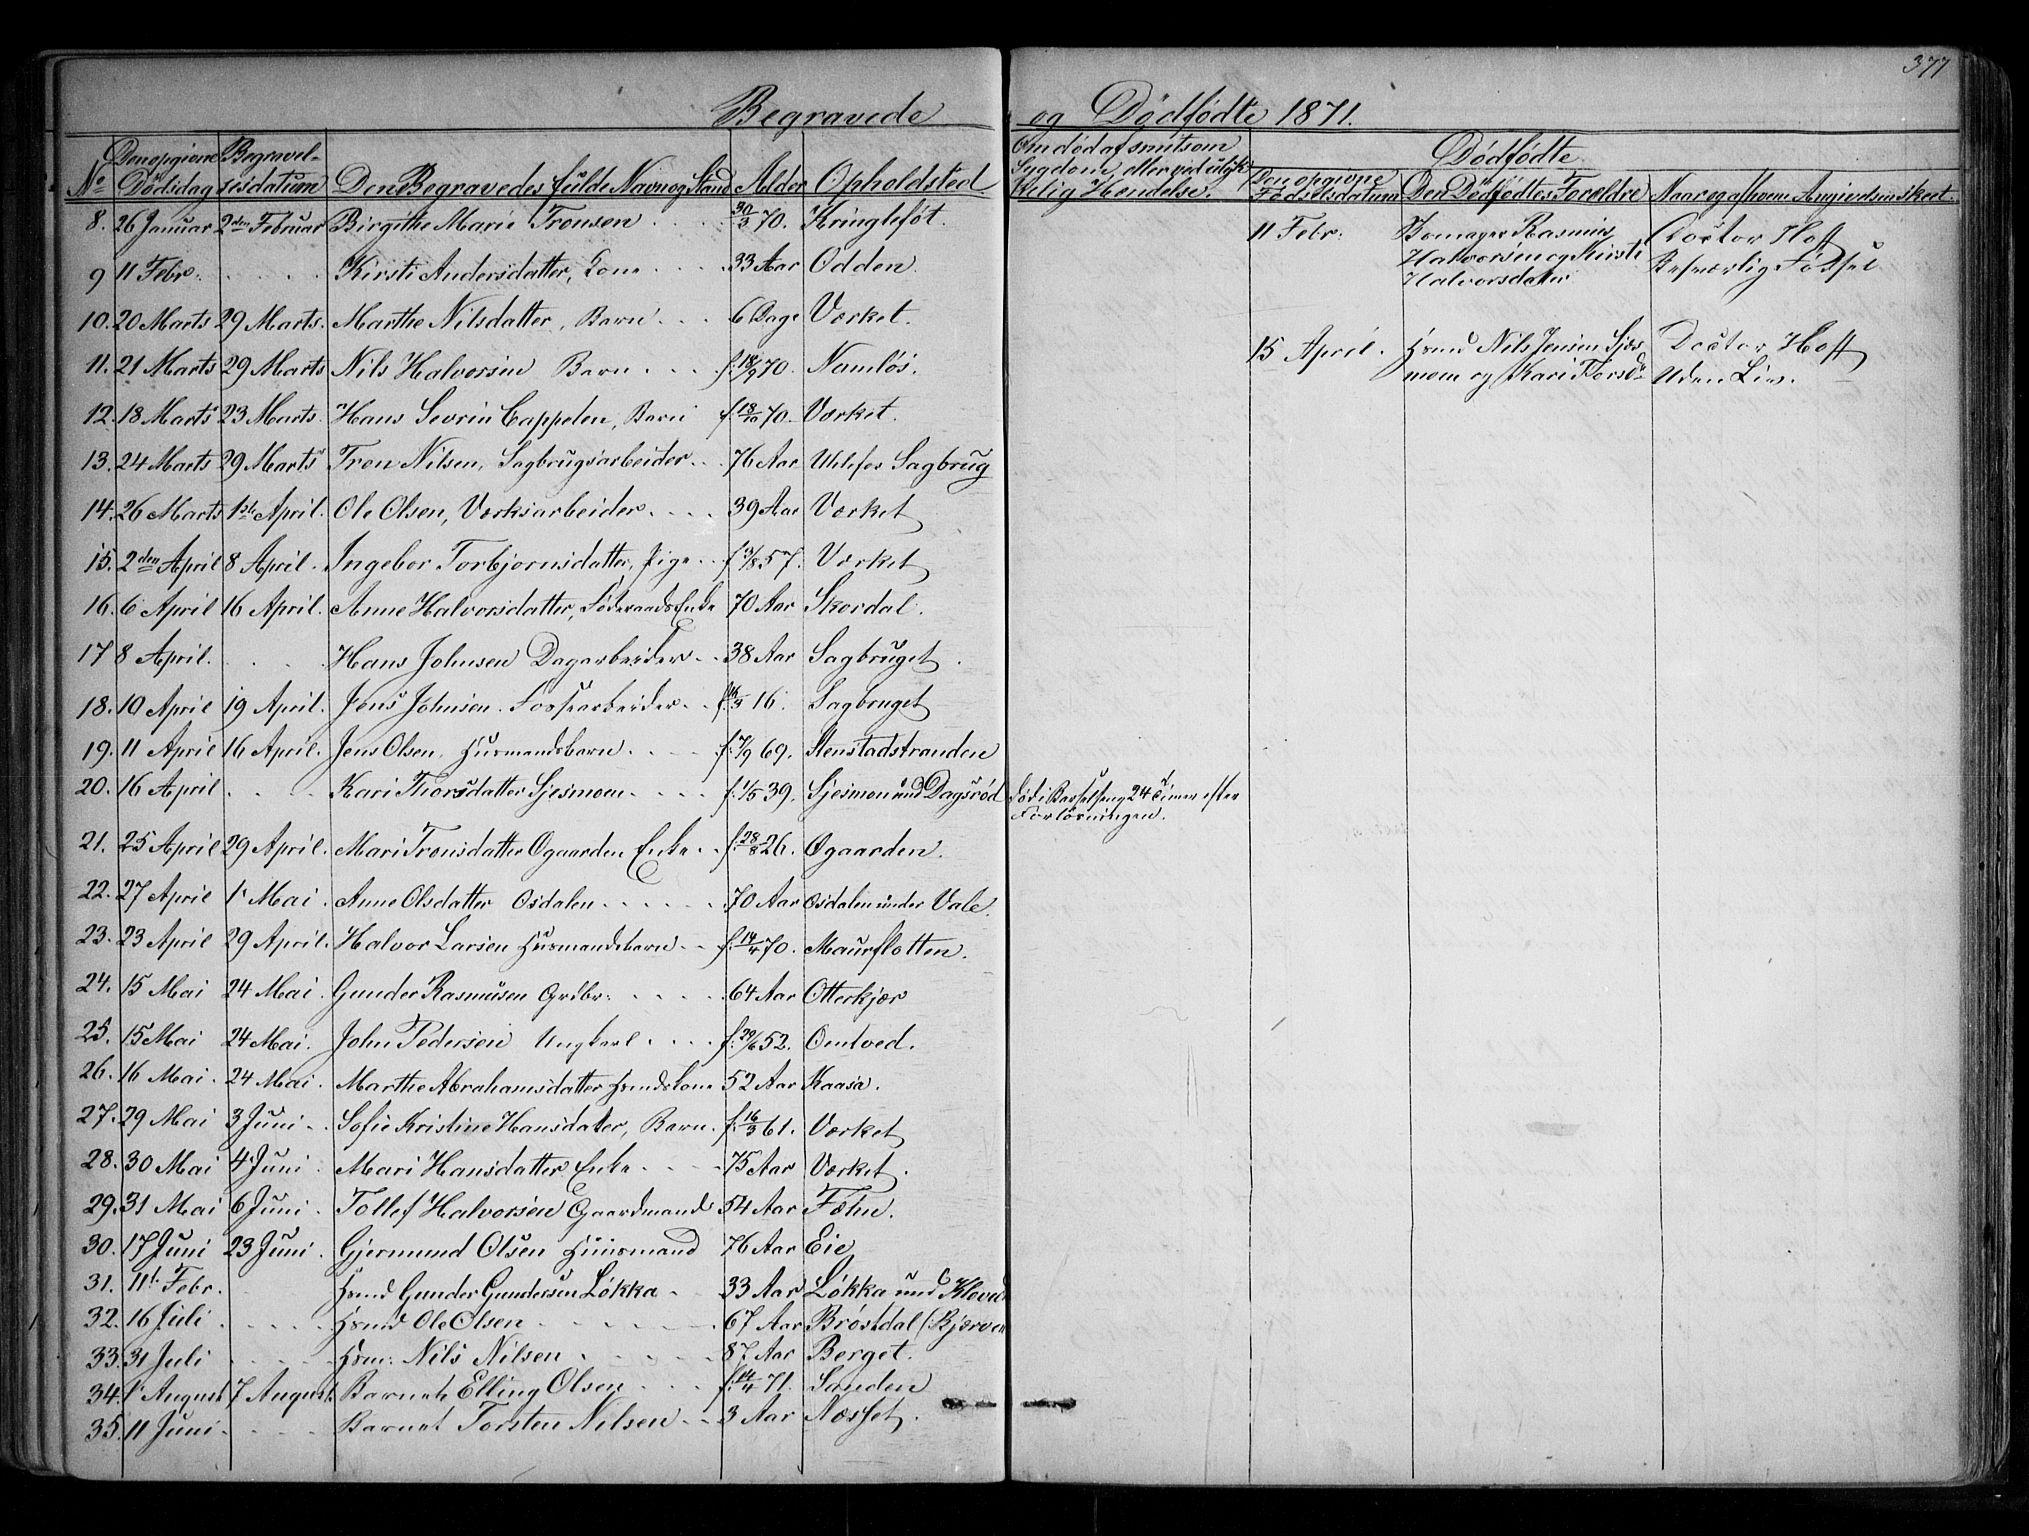 377
Begravede og Dödfödte 1871.
No Den opgivne Dödsdag Begravelsesdatum Den Begravedes fulde Navn og Stand Alder Opholdsted
Om död af smitsom Sygdom, eller ved ulykkelig Hendelse.
Dödfödte
Den opgivne Födselsdatum Den Dödfödtes Foreldre Naar og af hvem Angivelsen skeet.
8. 26 Januar 2den Februar Birgithe Marie Tronsen 30/3 70. Kringlefót.
9 11 Febr. Kirsti Andersdatter, Kone 33 Aar Odden.
10. 20 Marts 29 Marts. Marthe Nilsdatter, Barn 6 Dage Værket.
11. 21 Marts 29 Marts Nils Halvorsen Barn f. 18/9 70. Namlös.
12. 18 Marts 23 Marts. Hans Sevrin Cappelen, Barn f. 18/10 70. Værket.
13. 24 Marts 29 Marts Tron Nilsen, Sagbrugsarbeider 76 Aar Ulefos Sagbrug
14. 26 Marts 1ste April. Ole Olsen, Værksarbeider 39 Aar Værket
15. 2den April 8 April. Ingebor Torbjornsdatter, Pige f. 3/8 57. Værket
16. 6 April 16 April. Anne Halvorsdatter, Föderaads Enke 70 Aar Skordal.
17 8 April. Hans Johnsen Dagarbeider 38 Aar Sagbruget.
18. 10 April 19 April. Jens Johnsen. Fossearbeider 16. Sagbruget
19. 11 April 16 April. Jens Olsen, Husmandsbarn f. 7/9 69. Stenstadstranden
20. 16 April Kari Thorsdatter Sjesmoen f. 1/5 39. Sjesmoen und Dagsröd Död i Barselseng 24 Timer efter
Forlösningen.
21. 25 April 29 April. Mari Tronsdatter Ögaarden Enke f. 28/8 26. Øgaarden.
22. 27 April 1 Mai. Anne Olsdatter Osdalen 70 Aar Osdalen under Vale.
23. 23 April 29 April. Halvor Larsen Husmandsbarn f. 14/4 70. Maurflotten.
24. 15 Mai 24 Mai. Gunder Rasmusen Grdbr. 64 Aar Otterkjær
25. 15 Mai 24 Mai. John Pedersen Ungkarl f. 29/6 52. Omtved.
26. 16 Mai. 24 Mai. Marthe Abrahamsdatter Hsmdskone 52 Aar Kaasa.
27. 29 Mai 3 Juni. Sofie Kristine Hansdatter, Barn. f. 16/3 61. Værket
28. 30 Mai 4 Juni Mari Hansdatter Enke 75 Aar Værket.
29. 31 Mai 6 Juni. Tollef Halvorsen Gaardmand 54 Aar Fæhn.
30. 17 Juni 23 Juni. Gjermund Olsen Huusmand 76 Aar Eie
31. 11t Febr. Hsmd Gunder Gundersen Lökka 33 Aar Lökka und
32. 16 Juli. Hsmd Ole Olsen 67 Aar Bröstdal
33. 31 Juli Hsm: Nils Nilsen 87 Aar Berget.
34. 1 August 7 August. Barnet Elling Olsen f. 14/4 71. Sanden
35. 11 Juni Barnet Torsten Nilsen 3 Aar Næsset.
11 Febr: Rasmus Doctor Hoff
Halvorsen og Kirsti Besværlig Födsel
Halvorsdatter
15 April. Hsmd Nils Jensen Sjes- Doctor Hoff
moen og Kari Torsd. Uden Liv.